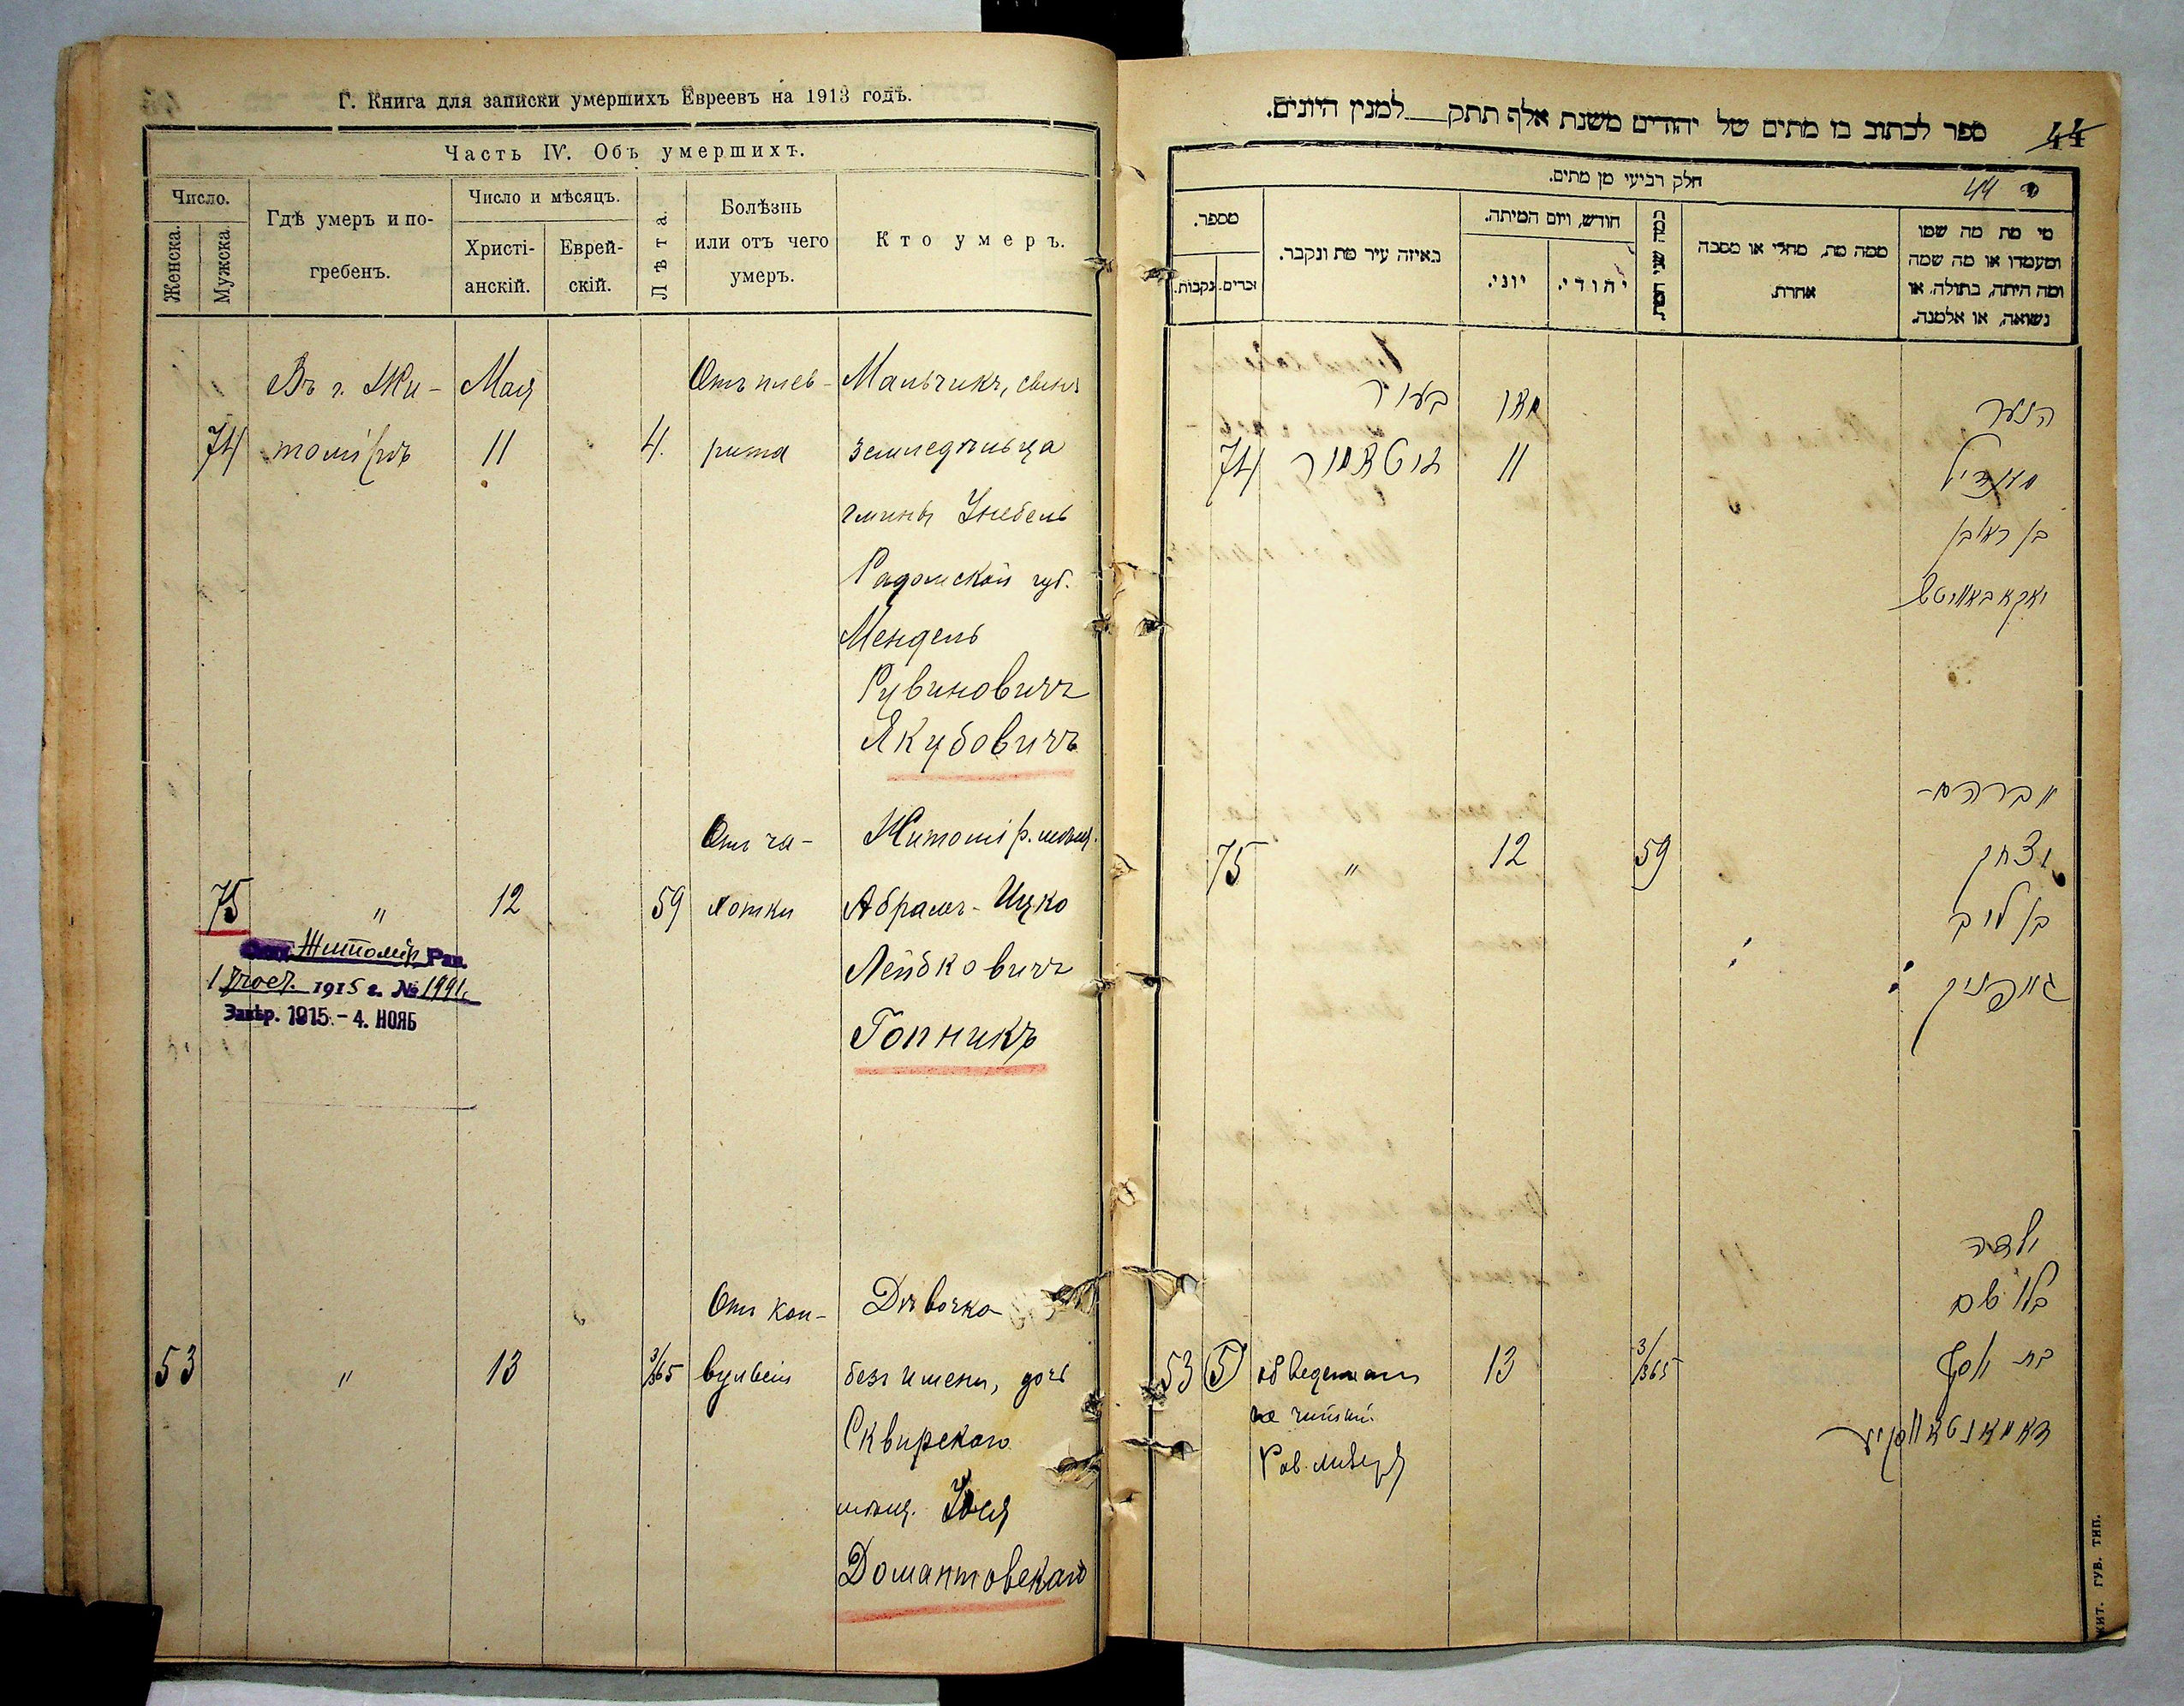 Г. Книга для записки умершихъ Евреевъ на 1913 годъ.
Часть IV. Объ умершихъ.
Число.
Женска.
Мужска.
Гдѣ умеръ и по-
гребенъ.
Число и мѣсяцъ.
Христі-
анскій.
Еврей-
скій.
Лѣта.
Болѣзнь
или отъ чего
умеръ.
Кто умеръ.
Въ г. Жи- Мая Отъ плев- Мальчикъ, сынъ
74 томірѣ 11 4. рита земледѣльца
гмины
Радомской губ.
Мендель
Рувиновичъ
Якубовичъ
Отъ ча- Житомір. мѣщ.
75 " 12 59 хотки Абрамъ-Ицко
Лейбковичъ
Гопникъ
Житомір. Рав.
1915 г. № 1991
Завѣр. 1915 - 4. НОЯБ
Отъ кон- Дѣвочка
53 " 13 3/365 вульсій безъ имени, дочь
Сквирскаго
мѣщ.
Домантовскаго
ספר לכתוב בו מתים של יהודים משנת אלף תתק למנין היונים.
44
חלק רביעי מן מתים.
44
מספר.
זכרים.
נקבות.
באיזה עיר מת ונקבר.
חודש, ויום המיתה.
יוני.
יהודי.
כמה שני המת
ממה מת, מחלי או מסבה
אחרת.
מי מת מה שמו
ומעמדו או מה שמה
ומה היתה, בתולה, או
נשואה, או אלמנה.
בעיר מאי הנער
74 זיטאמיר 11 מענדיל
בן ראובן
יאקאבאוויטש
אברהם-
75 " 12 59 יצחק
בן לייב
גאפניק
ילדה
בלי שם
53 5 13 3/365 בת יוסף
דאמאנטאווסקי
ЖИТ. ГУБ. ТИП.